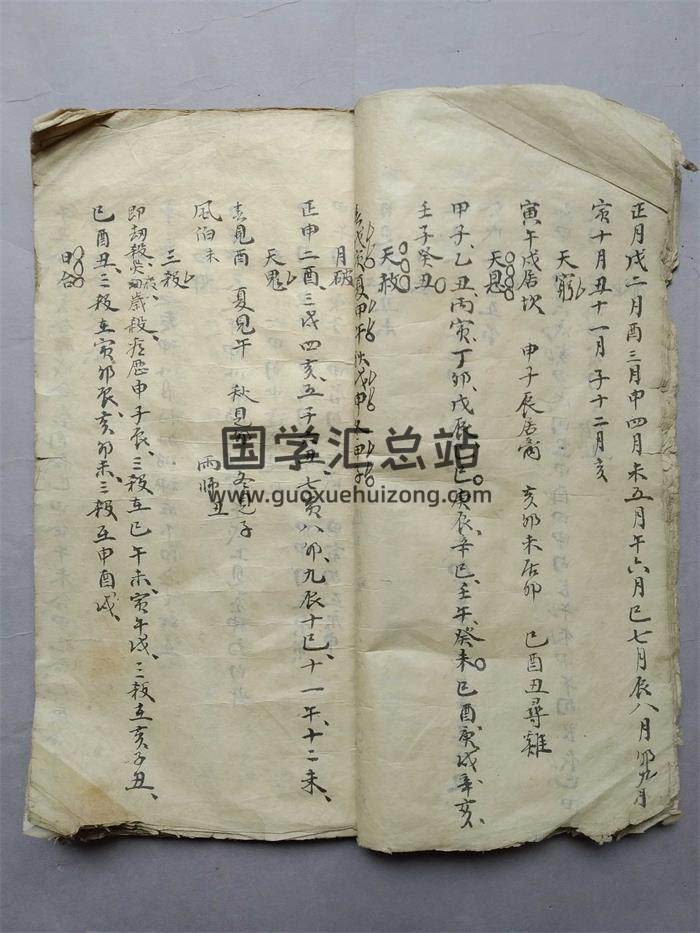 正月戌二月酉三月申四月未五月午六月巳七月辰八月卯九月
寅十月丑十一月子十二月亥
天窮
寅午戌居坎 申子辰居 亥卯未居卯 巳酉丑尋雞
天恩
甲子、乙丑、丙寅、丁卯、戊辰、己 庚辰、辛巳、壬午、癸未、己酉、庚戌、辛亥、
壬子癸丑
天赦
夏甲午秋戊申冬甲子
月破
正申二酉三戌四亥、五子 丑、七寅八卯、九辰十巳、十一午、十二未、
天鬼
春見酉 夏見午 秋見 冬見子
風伯未 雨師丑
三殺
即劫殺災殺歲殺 申子辰、三殺在巳午未、寅午戌、三殺在亥子丑、
巳酉丑、三殺在寅卯辰、亥卯未、三殺在申酉戌、
日合
国学汇总站
www.guoxuehuizong.com